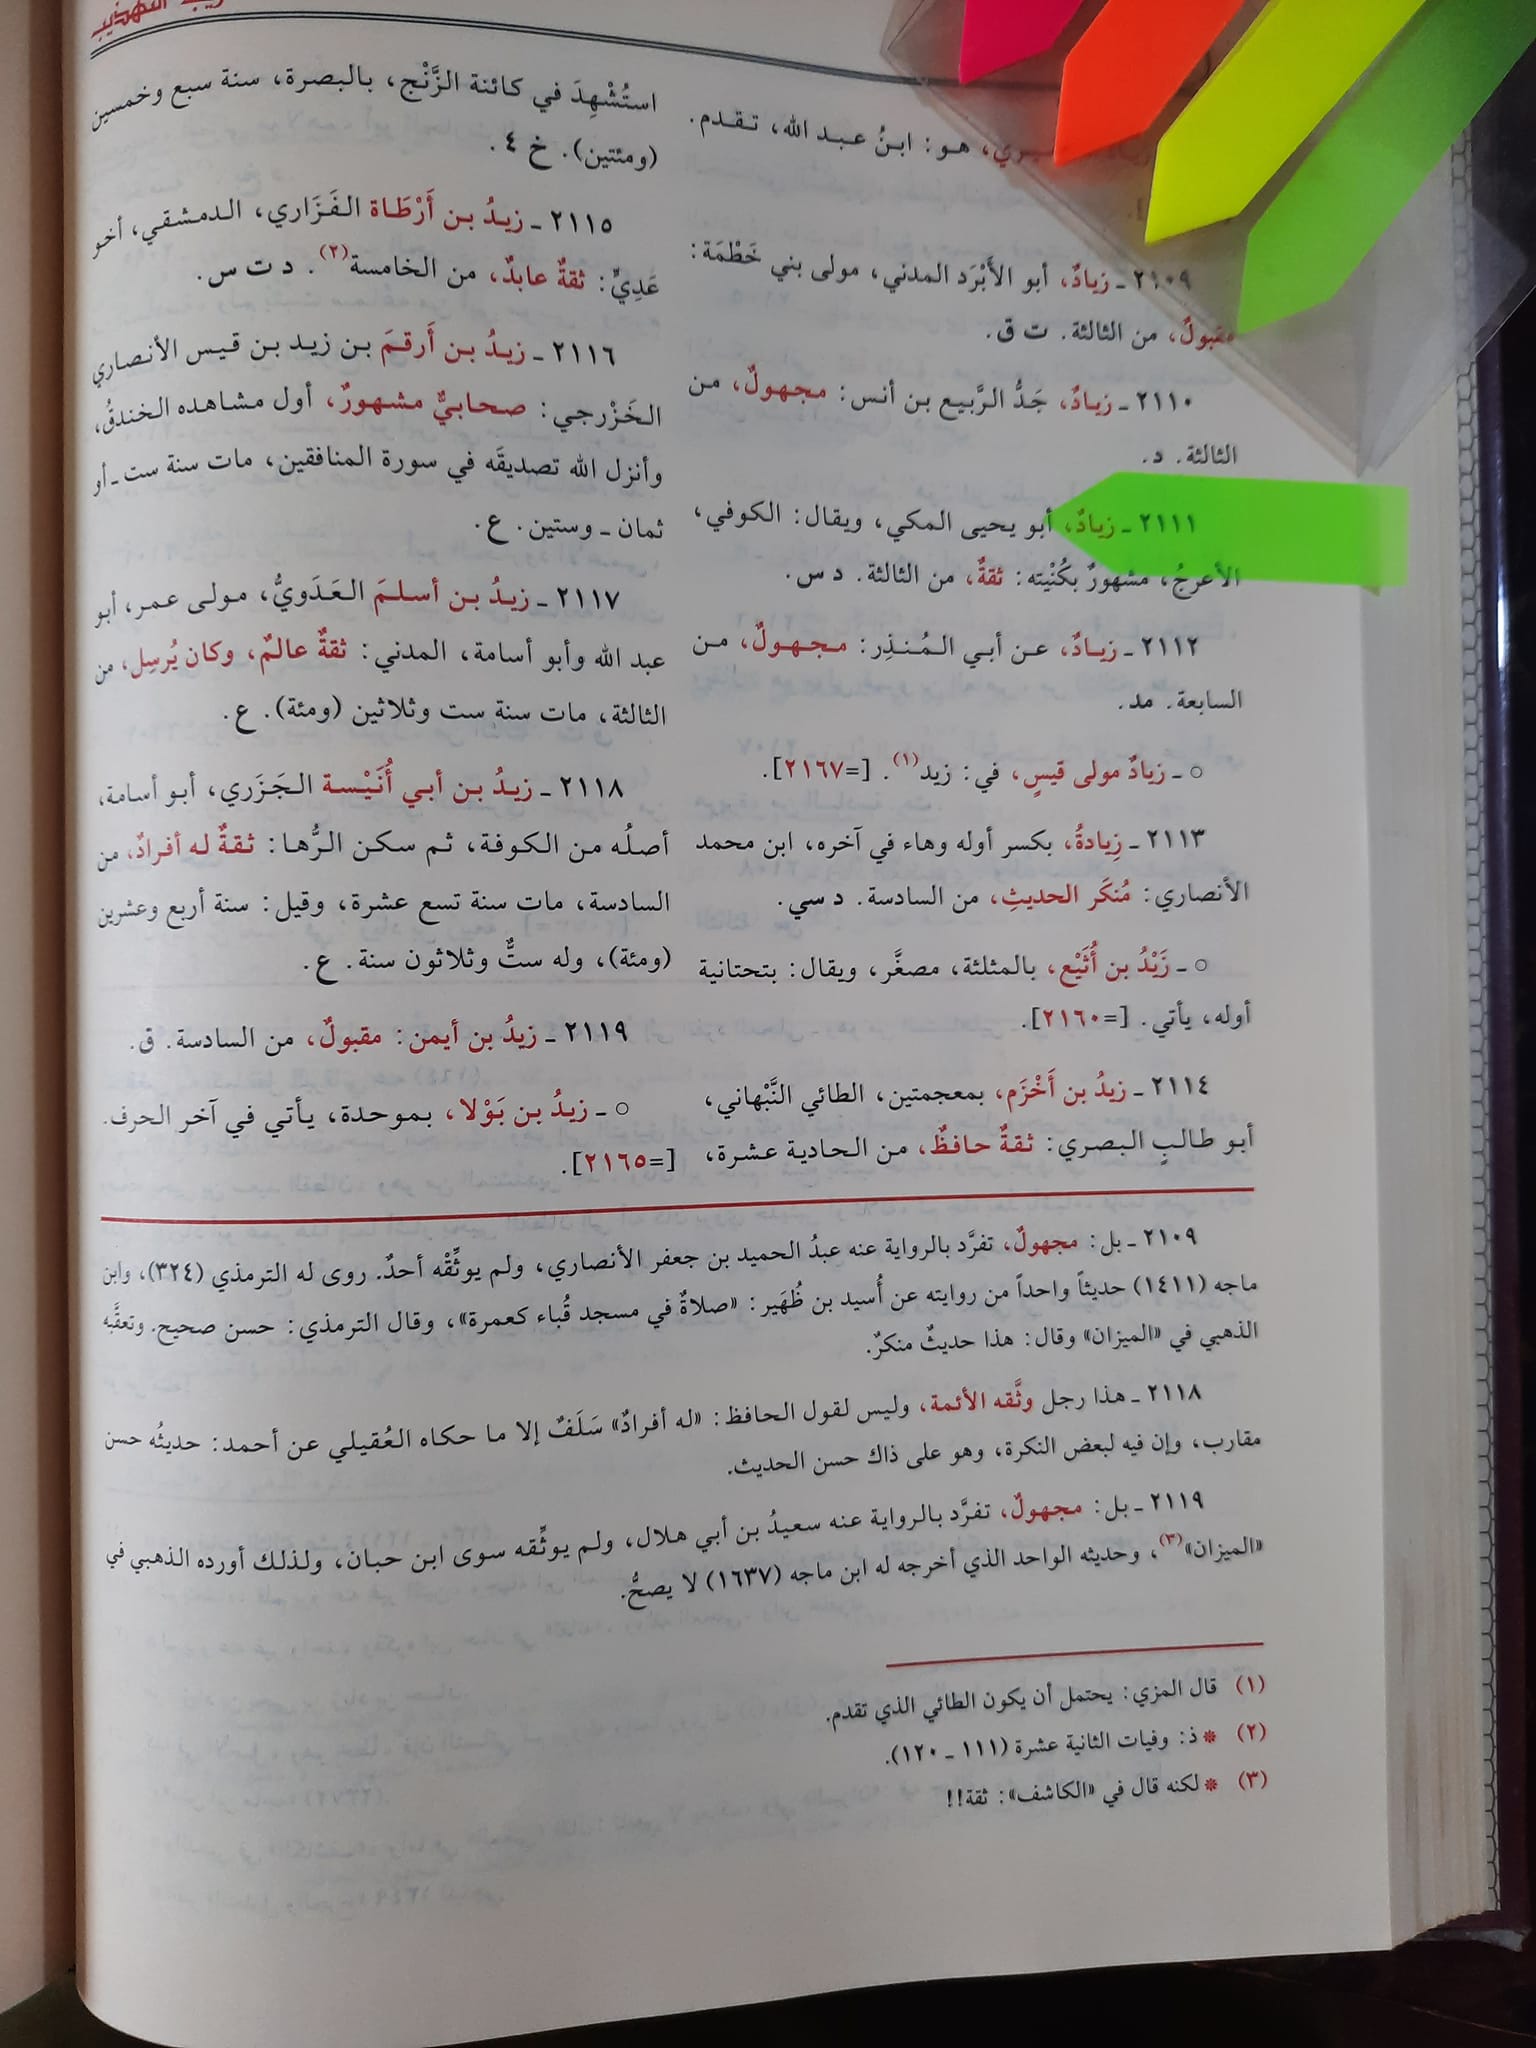 التهذيب
هو: ابنُ عبد الله، تقدم.
٢١٠٩ ـ زيادٌ، أبو الأَبْرَد المدني، مولى بني خَطْمَة:
مقبولٌ، من الثالثة. ت ق.
٢١١٠ ـ زيادٌ، جَدُّ الرَّبيع بن أنس: مجهولٌ، من
الثالثة. د.
٢١١١ ـ زيادٌ، أبو يحيى المكي، ويقال: الكوفي،
الأعرجُ، مشهورٌ بكُنْيته: ثقةٌ، من الثالثة. د س.
٢١١٢ ـ زيادٌ، عن أبي المُنذِر: مجهولٌ، من
السابعة. مد.
○ ـ زيادٌ مولى قيسٍ، في: زيد(١). [=٢١٦٧].
٢١١٣ ـ زِيادةُ، بكسر أوله وهاء في آخره، ابن محمد
الأنصاري: مُنكَر الحديثِ، من السادسة. د سي.
○ ـ زَيْدُ بن أُثَيْع، بالمثلثة، مصغَّر، ويقال: بتحتانية
أوله، يأتي. [=٢١٦٠].
٢١١٤ ـ زيدُ بن أَخْزَم، بمعجمتين، الطائي النَّبْهاني،
أبو طالبٍ البصري: ثقةٌ حافظٌ، من الحادية عشرة،
استُشْهِدَ في كائنة الزَّنْج، بالبصرة، سنة سبع وخمسين
(ومئتين). خ ٤.
٢١١٥ ـ زيدُ بن أَرْطَاة الفَزَاري، الدمشقي، أخو
عَدِيٍّ: ثقةٌ عابدٌ، من الخامسة(٢). د ت س.
٢١١٦ ـ زيدُ بن أَرقمَ بن زيد بن قيس الأنصاري
الخَزْرجي: صحابيٌّ مشهورٌ، أول مشاهده الخندقُ،
وأنزل الله تصديقَه في سورة المنافقين، مات سنة ست ـ أو
ثمان ـ وستين. ع.
٢١١٧ ـ زيدُ بن أسلمَ العَدَويُّ، مولى عمر، أبو
عبد الله وأبو أسامة، المدني: ثقةٌ عالمٌ، وكان يُرسِل، من
الثالثة، مات سنة ست وثلاثين (ومئة). ع.
٢١١٨ ـ زيدُ بن أبي أُنَيْسة الجَزَري، أبو أسامة،
أصلُه من الكوفة، ثم سكن الرُّها: ثقةٌ له أفرادٌ، من
السادسة، مات سنة تسع عشرة، وقيل: سنة أربع وعشرين
(ومئة)، وله ستٌّ وثلاثون سنة. ع.
٢١١٩ ـ زيدُ بن أيمن: مقبولٌ، من السادسة. ق.
○ ـ زيدُ بن بَوْلا، بموحدة، يأتي في آخر الحرف.
[=٢١٦٥].
٢١٠٩ ـ بل: مجهولٌ، تفرَّد بالرواية عنه عبدُ الحميد بن جعفر الأنصاري، ولم يوثِّقْه أحدٌ. روى له الترمذي (٣٢٤)، وابن
ماجه (١٤١١) حديثاً واحداً من روايته عن أُسيد بن ظُهَير: «صلاةٌ في مسجد قُباء كعمرة»، وقال الترمذي: حسن صحيح. وتعقَّبه
الذهبي في «الميزان» وقال: هذا حديثٌ منكرٌ.
٢١١٨ ـ هذا رجل وثَّقه الأئمة، وليس لقول الحافظ: «له أفرادٌ» سَلَفٌ إلا ما حكاه العُقيلي عن أحمد: حديثُه حسن
مقارب، وإن فيه لبعض النكرة، وهو على ذاك حسن الحديث.
٢١١٩ ـ بل: مجهولٌ، تفرَّد بالرواية عنه سعيدُ بن أبي هلال، ولم يوثِّقه سوى ابن حبان، ولذلك أورده الذهبي في
«الميزان»(٣)، وحديثه الواحد الذي أخرجه له ابن ماجه (١٦٣٧) لا يصحُّ.
(١) قال المزي: يحتمل أن يكون الطائي الذي تقدم.
(٢) * ذ: وفيات الثانية عشرة (١١١ ـ ١٢٠).
(٣) * لكنه قال في «الكاشف»: ثقة!!